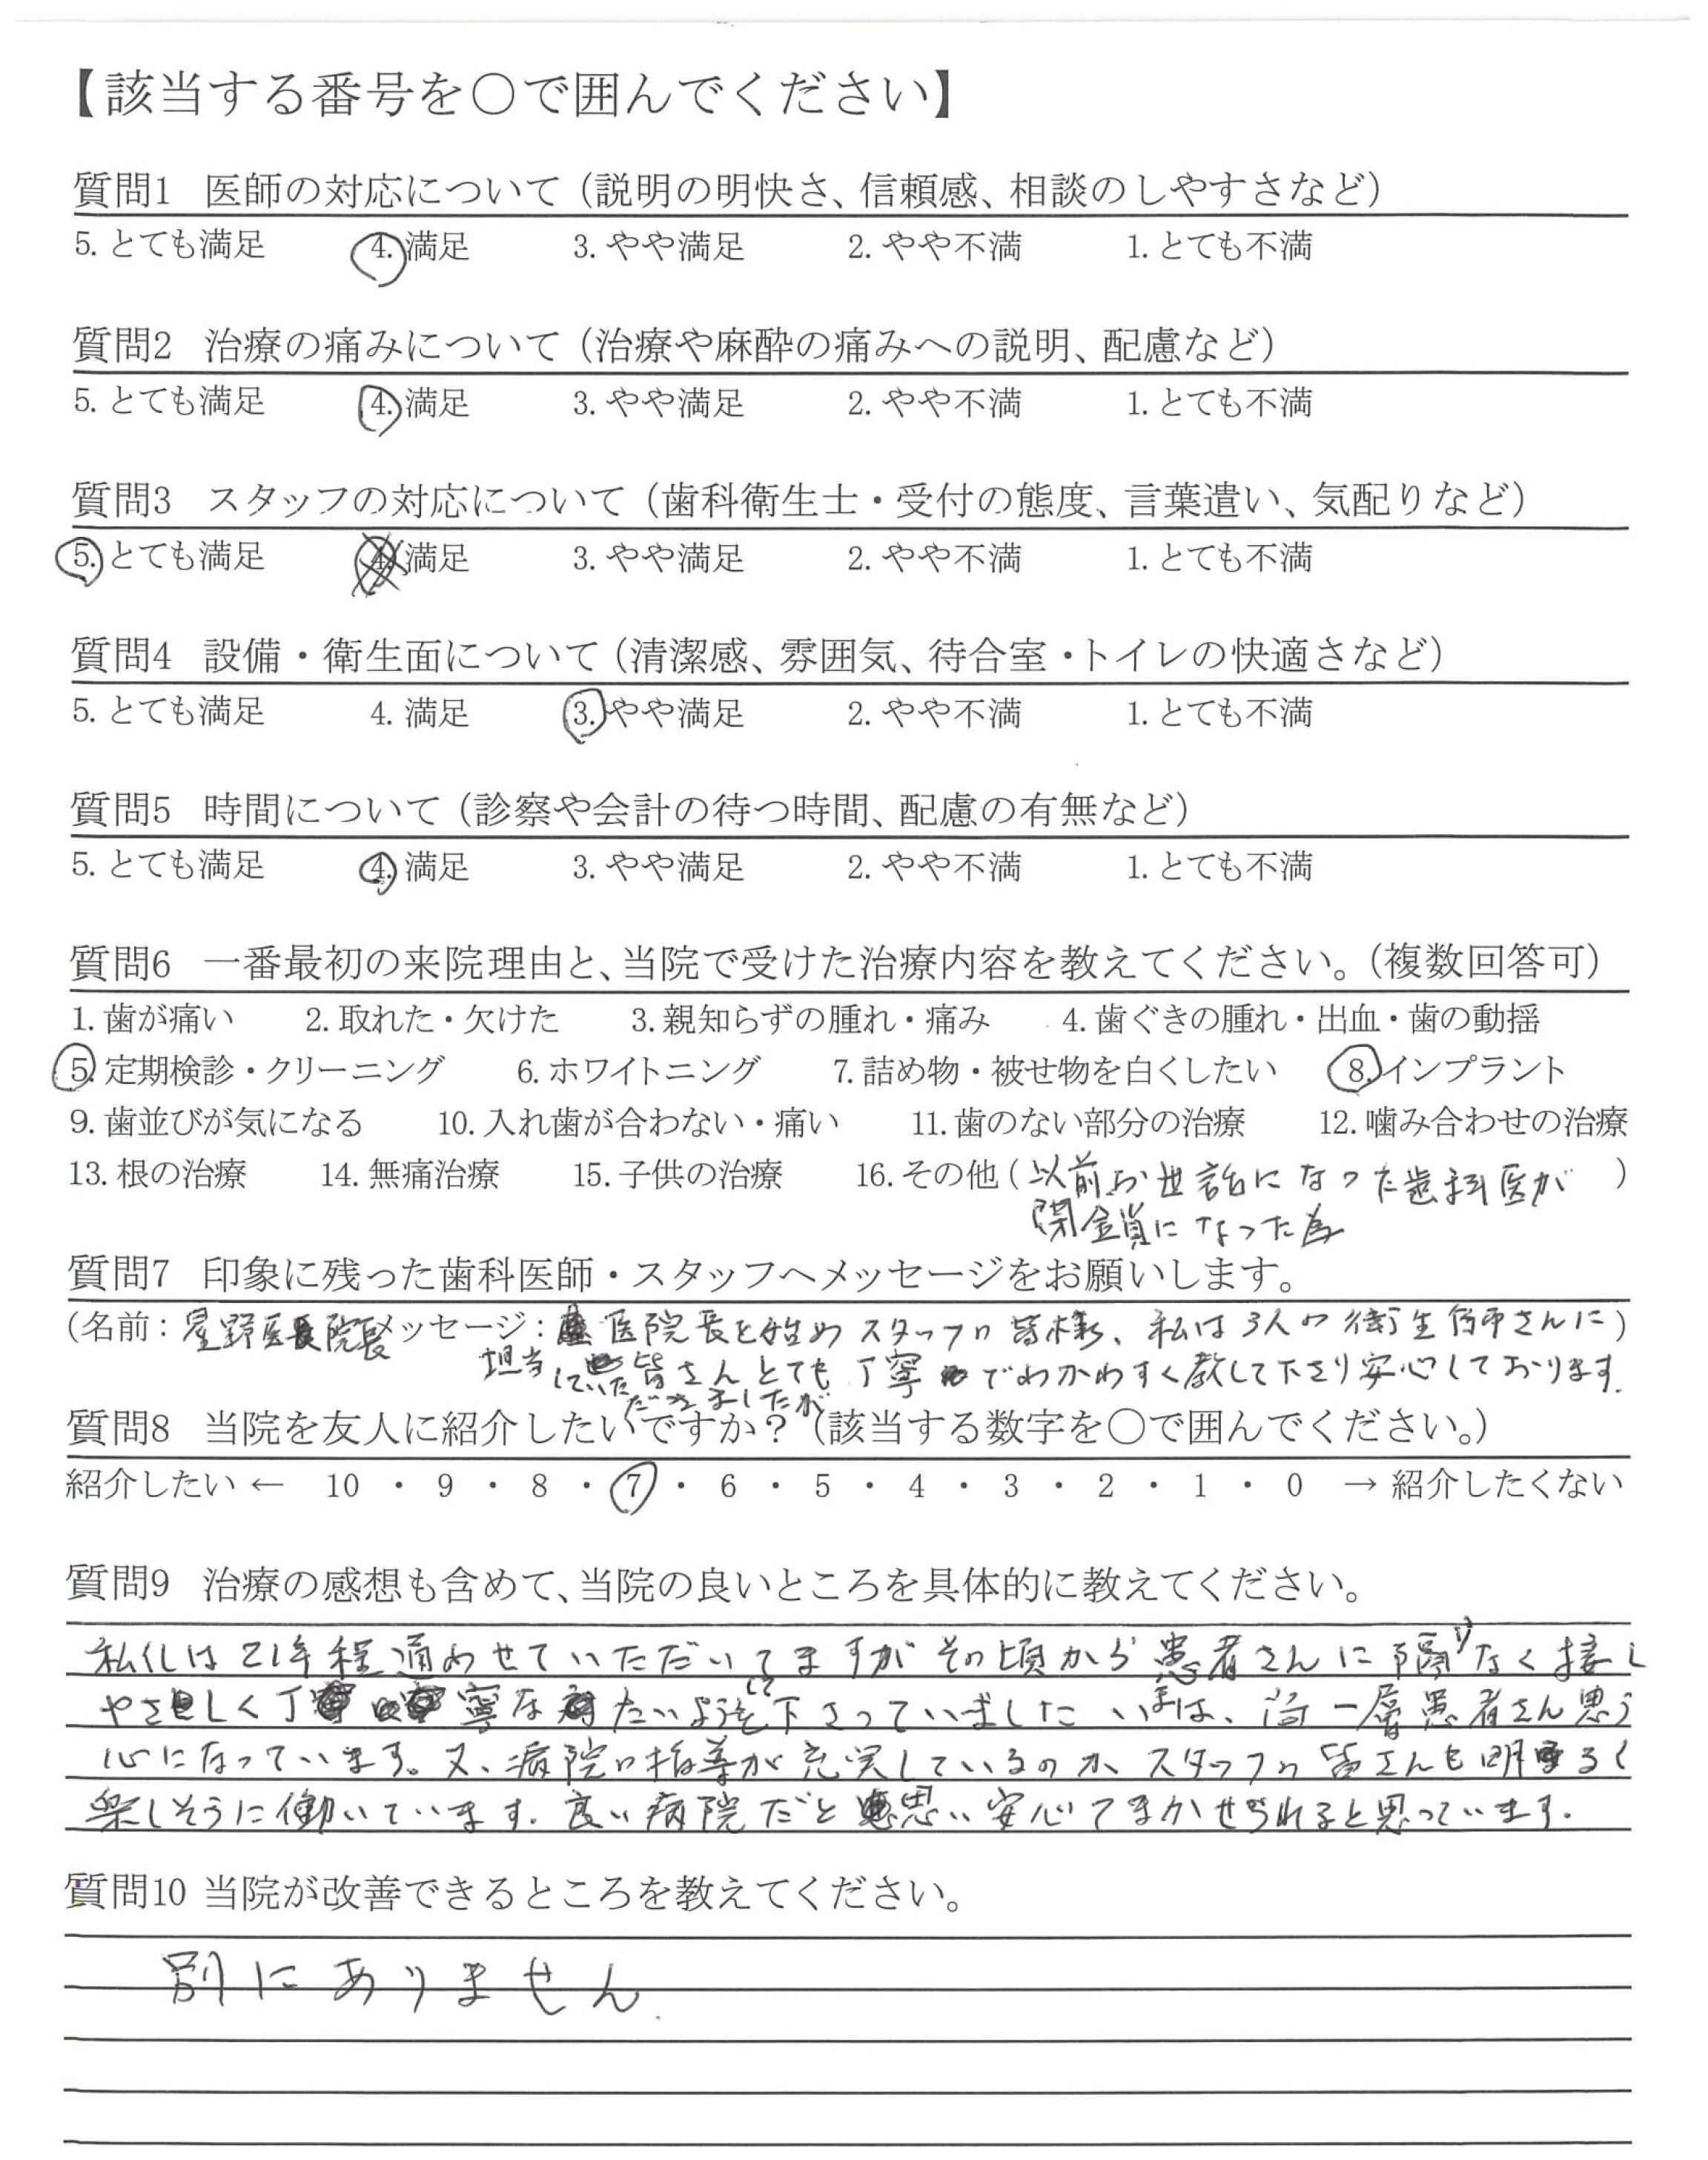 【該当する番号を〇で囲んでください】
質問1 医師の対応について（説明の明快さ、信頼感、相談のしやすさなど）
5. とても満足 4. 満足 3. やや満足 2. やや不満 1. とても不満
質問2 治療の痛みについて（治療や麻酔の痛みへの説明、配慮など）
5. とても満足 4. 満足 3. やや満足 2. やや不満 1. とても不満
質問3 スタッフの対応について（歯科衛生士・受付の態度、言葉遣い、気配りなど）
5. とても満足 4. 満足 3. やや満足 2. やや不満 1. とても不満
質問4 設備・衛生面について（清潔感、雰囲気、待合室・トイレの快適さなど）
5. とても満足 4. 満足 3. やや満足 2. やや不満 1. とても不満
質問5 時間について（診察や会計の待つ時間、配慮の有無など）
5. とても満足 4. 満足 3. やや満足 2. やや不満 1. とても不満
質問6 一番最初の来院理由と、当院で受けた治療内容を教えてください。（複数回答可）
1. 歯が痛い 2. 取れた・欠けた 3. 親知らずの腫れ・痛み 4. 歯ぐきの腫れ・出血・歯の動揺
5. 定期検診・クリーニング 6. ホワイトニング 7. 詰め物・被せ物を白くしたい 8. インプラント
9. 歯並びが気になる 10. 入れ歯が合わない・痛い 11. 歯のない部分の治療 12. 噛み合わせの治療
13. 根の治療 14. 無痛治療 15. 子供の治療 16. その他（以前お世話になった歯科医が）
閉鎖になった為
質問7 印象に残った歯科医師・スタッフへメッセージをお願いします。
（名前：星野医院長 メッセージ：医院長を始めスタッフの皆様、私は3人の衛生師さんに）
担当していただきましたが皆さんとても丁寧でわかわすく教して下さり安心しております.
質問8 当院を友人に紹介したいですか？（該当する数字を〇で囲んでください。）
紹介したい ← 10 ・ 9 ・ 8 ・ 7 ・ 6 ・ 5 ・ 4 ・ 3 ・ 2 ・ 1 ・ 0 → 紹介したくない
質問9 治療の感想も含めて、当院の良いところを具体的に教えてください。
私くしは21年程通わせていただいてますがその頃から患者さんに隔けなく接し
やさしく丁寧なたいようをして下さっていました いまは、尚一層患者さん思う
心になっています。又、病院の指導が充実しているのか、スタッフの皆さんも明るく
楽しそうに働いています. 良い病院だと思い安心てまかせられると思っています.
質問10 当院が改善できるところを教えてください。
別にありません.